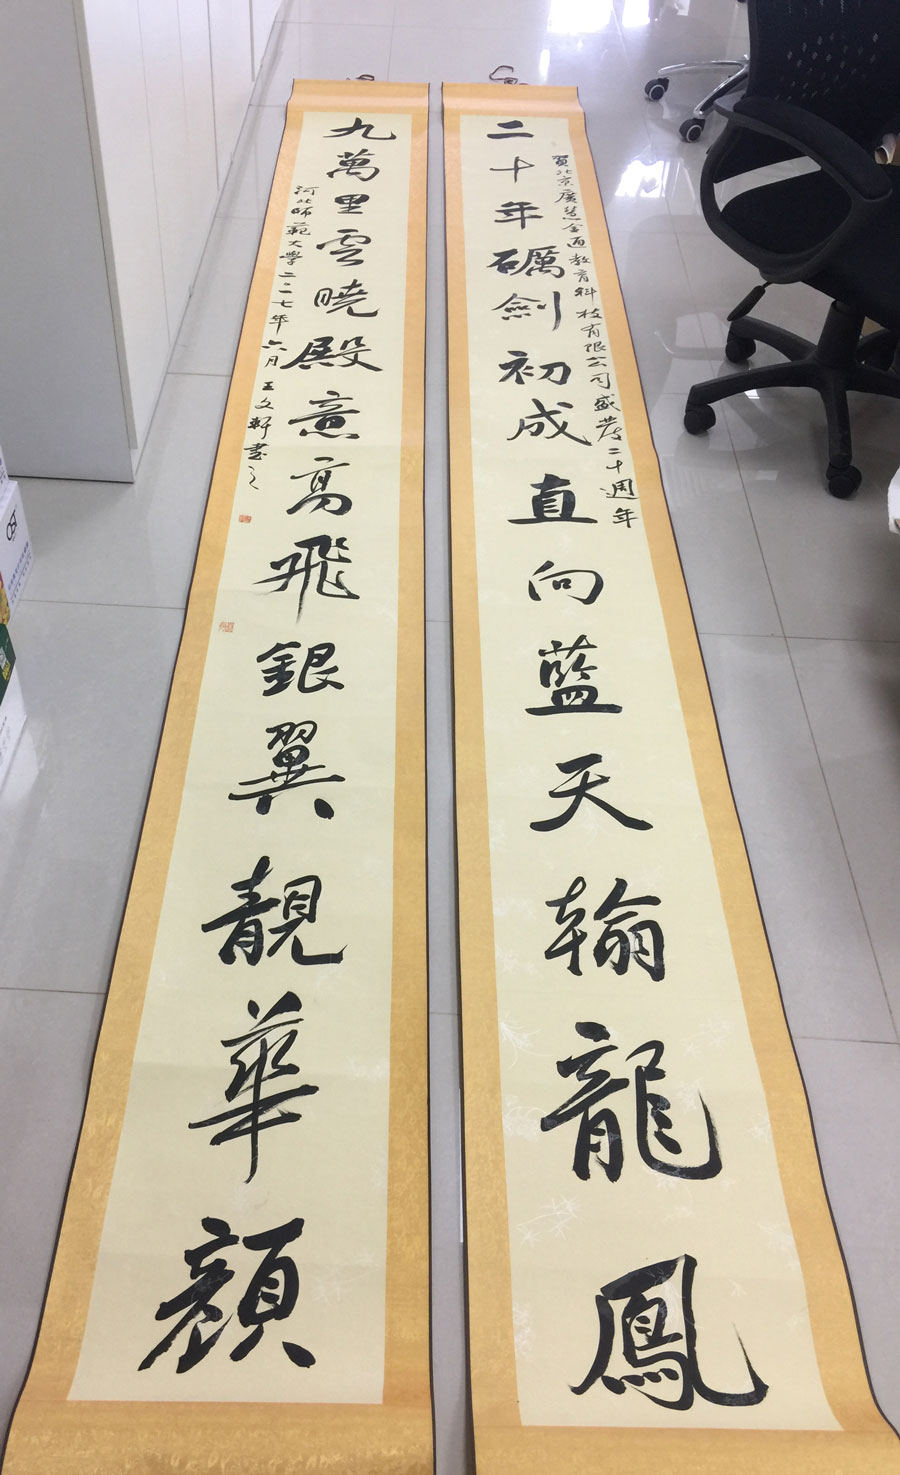 二十年礪劍初成直向藍天翰龍鳳
賀北京廣慧金通教育科技有限公司盛二十週年
九萬里雲曉殿意高飛銀翼靚華顏
河北師範大學二〇一七年六月王文軒書之